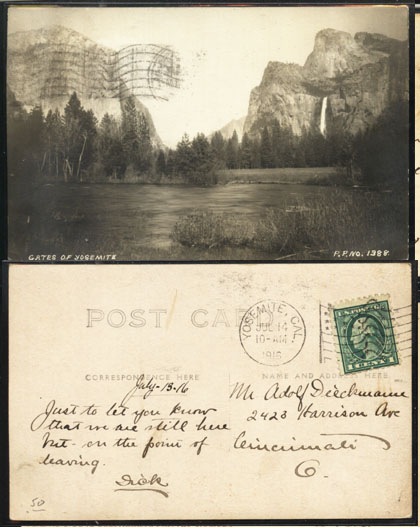 GATES OF YOSEMITE
P.P.NO. 1388
POST CARD
YOSEMITE, CAL.
JUL 14
10-AM
1916
CORRESPONDENCE HERE
NAME AND ADDRESS HERE
July-13-16
Just to let you know
that we are still here
but on the point of
leaving.
Dick
Mr Adolf Dieckmann
2423 Harrison Ave
Cincinnati
O.
50